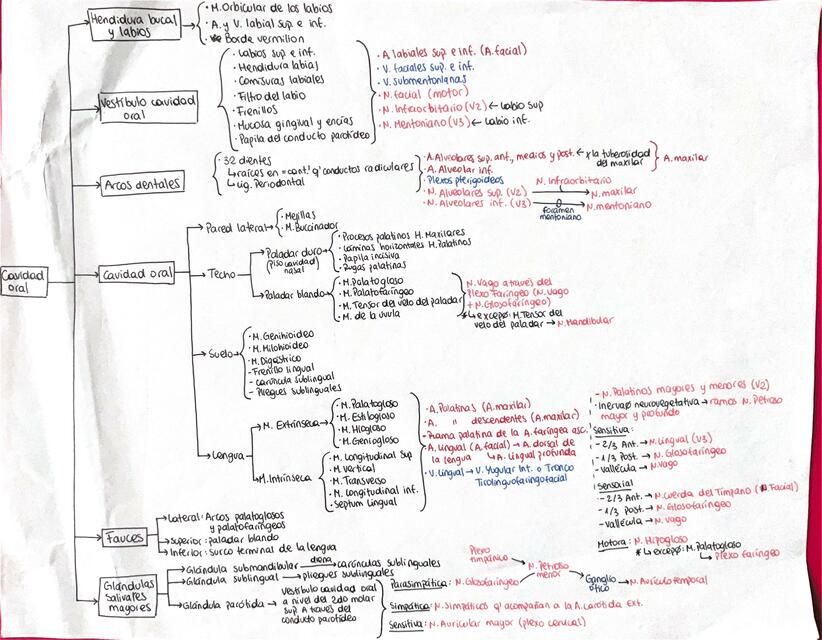 Cavidad
oral
Hendidura bucal
y labios
· M. Orbicular de los labios
· A. y V. labial sup. e inf.
· Borde vermilion
Vestíbulo cavidad
oral
· Labios sup e inf.
· Hendidura labial
· Comisuras labiales
· Filtro del labio
· Frenillos
· Mucosa gingival y encías
· Papila del conducto parotídeo
· A. labiales sup e inf. (A. facial)
· V. faciales sup. e inf.
· V. submentonianas
· N. facial (motor)
· N. Infraorbitario (V2) ← Labio sup
· N. Mentoniano (V3) ← Labio inf.
Arcos dentales
· 32 dientes
↳ raíces en = cant. q' conductos radiculares
↳ Lig. Periodontal
· A. Alveolares sup. ant., medios y post. ← x la tuberosidad
del maxilar
· A. Alveolar inf.
A. maxilar
· Plexos pterigoideos
· N. Alveolares sup. (V2) N. Infraorbitario → N. maxilar
· N. Alveolares inf. (V3) foramen
mentoniano → N. mentoniano
Cavidad oral
Pared lateral
· Mejillas
· M. Buccinador
Techo
Paladar duro
(piso cavidad
nasal)
· Procesos palatinos H. Maxilares
· Láminas horizontales H. Palatinos
· Papila incisiva
· Rugas palatinas
Paladar blando
· M. Palatogloso
· M. Palatofaríngeo
· M. Tensor del velo del paladar
· M. de la úvula
N. Vago a través del
Plexo Faríngeo (N. Vago
+ N. Glosofaríngeo)
↳ excepº: M. Tensor del
velo del paladar → N. Mandibular
Suelo
· M. Genihioideo
· M. Milohioideo
· M. Digástrico
- Frenillo lingual
- carúncula sublingual
- Pliegues sublinguales
Lengua
M. Extrínseca
· M. Palatogloso
· M. Estilogloso
· M. Hiogloso
· M. Geniogloso
M. Intrínseca
· M. Longitudinal Sup
· M. Vertical
· M. Transverso
· M. Longitudinal inf.
· Septum Lingual
· A. Palatinas (A. maxilar)
· A. " descendentes (A. maxilar)
· Rama palatina de la A. faríngea asc.
· A. Lingual (A. facial) → A. dorsal de
la lengua ↳ A. Lingual profunda
· V. Lingual → V. Yugular Int. o Tronco
Tirolinguofaringofacial
- N. Palatinos mayores y menores (V2)
· Inervaº neurovegetativa → ramos N. Petroso
mayor y profundo
Sensitiva:
- 2/3 Ant. → N. Lingual (V3)
- 1/3 Post. → N. Glosofaríngeo
- vallécula → N. Vago
Sensorial
- 2/3 Ant. → N. Cuerda del Tímpano (N. Facial)
- 1/3 Post. → N. Glosofaríngeo
- vallécula → N. Vago
Motora: N. Hipogloso
↳ excepº: M. Palatogloso
↳ plexo faríngeo
Fauces
Lateral: Arcos palatoglosos
y palatofaríngeos
Superior: paladar blando
Inferior: Surco terminal de la lengua
Glándulas
Salivares
mayores
Glándula submandibular drena → carúnculas sublinguales
Glándula sublingual → pliegues sublinguales
Glándula parótida →
vestíbulo cavidad oral
a nivel del 2do molar
sup. A través del
conducto parotídeo
Parasimpática: N. Glosofaríngeo
Plexo
timpánico
N. Petroso
menor
Ganglio
ótico
N. Auriculotemporal
Simpática: N. Simpáticos q' acompañan a la A. carótida Ext.
Sensitiva: N. Auricular mayor (plexo cervical)